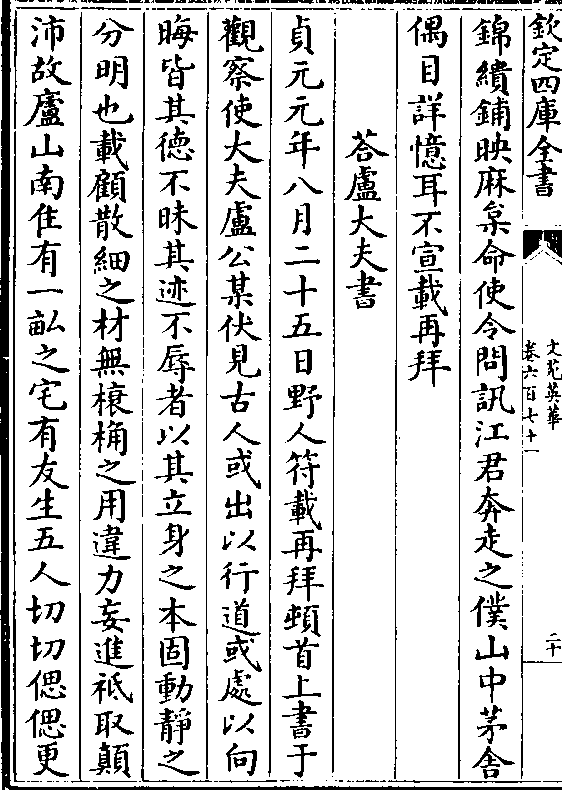 欽定四庫全書
文苑英華
卷六百七十一
二十
錦繢鋪映麻枲命使令問訊江君奔走之僕山中茅舍
偶目詳憶耳不宣載再拜
荅盧大夫書
貞元元年八月二十五日野人符載再拜頓首上書于
觀察使大夫盧公某伏見古人或出以行道或處以向
晦皆其德不昧其迹不辱者以其立身之本固動靜之
分明也載顧散細之材無榱桷之用違力妄進祗取顛
沛故廬山南住有一畝之宅有友生五人切切偲偲更